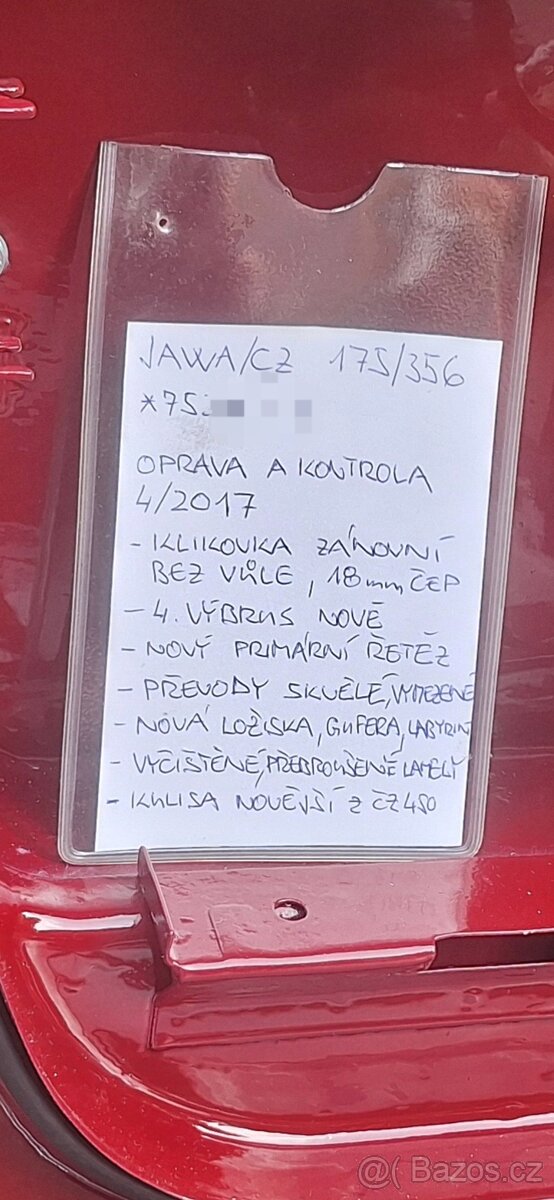 JAWA/CZ 175/356
*75
OPRAVA A KONTROLA
4/2017
- KLIKOVKA ZÁNOVNÍ
BEZ VŮLE, 18mm ČEP
- 4. VÝBRUS NOVÉ
- NOVÝ PRIMÁRNÍ ŘETĚZ
- PŘEVODY SKVĚLÉ, VYMEZENÉ
- NOVÁ LOŽISKA, GUFERA, LABYRINT
- VYČIŠTĚNÉ, PŘEBROUŠENÉ LAMELY
- KULISA NOVĚJŠÍ Z ČZ 450
@( Bazos.cz